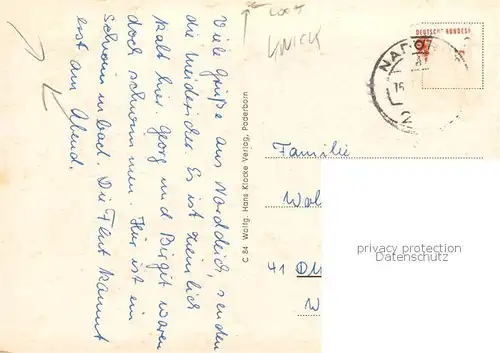 Viele Grüße aus Norddeich, senden
die Meidericher. Es ist ziemlich
kalt hier. Georg und Birgit waren
doch schwimmen. Hier ist ein
Schwimmbad. Die Flut kommt
erst am Abend.
C 84 Wolfig. Hans Klocke Verlag, Paderborn
KNICK
DEUTSCHE BUNDES
NARD
Familie
Wal
41 DU
W
privacy protection
Datenschutz